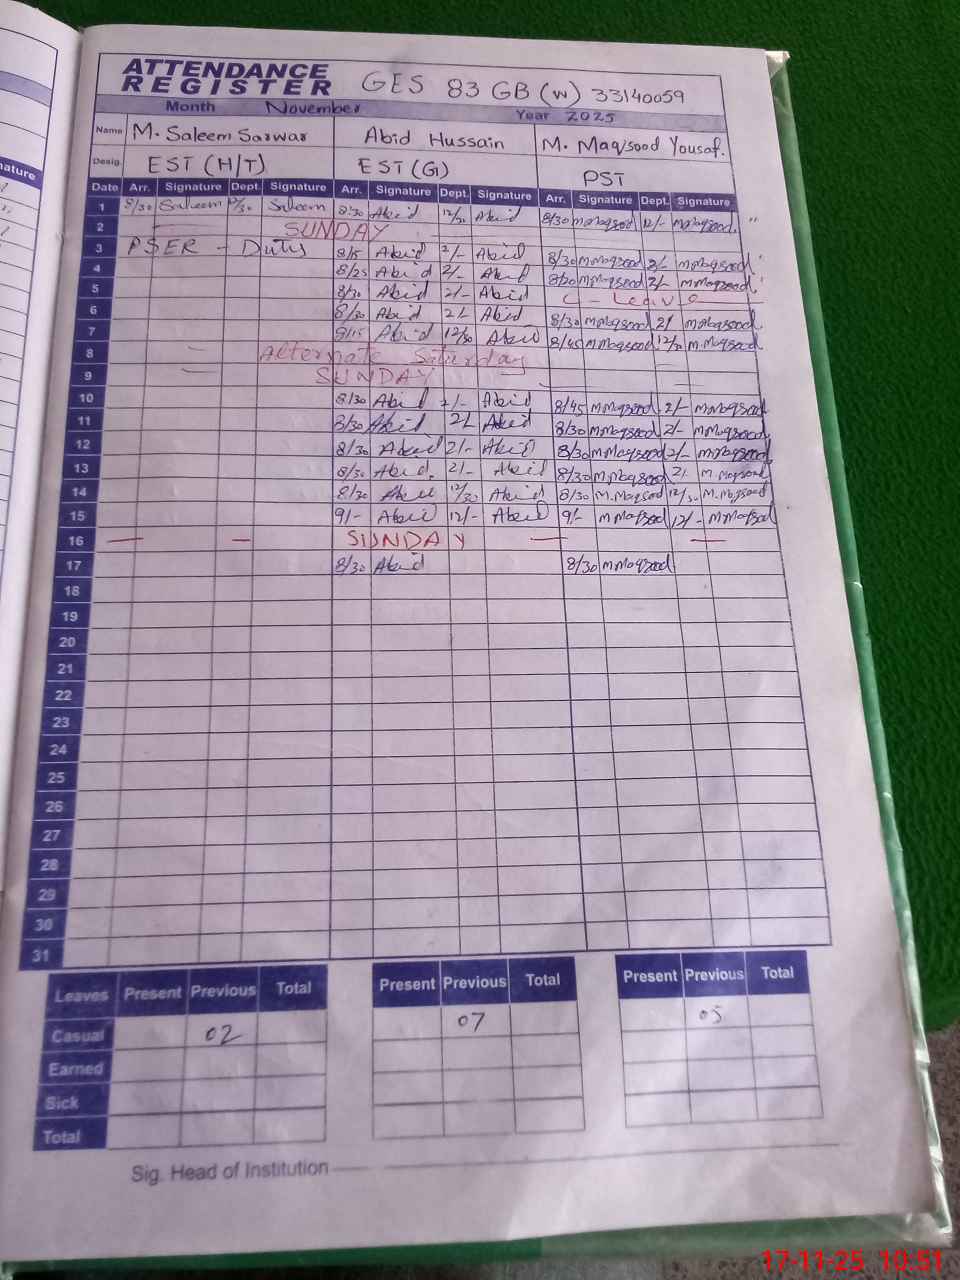 ature
ATTENDANCE
REGISTER GES 83 GB (W) 33140059
Month November Year 2025
Name M. Saleem Sarwar Abid Hussain M. Maqsood Yousaf.
Desig. EST (H/T) EST (G) PST
Date Arr. Signature Dept. Signature Arr. Signature Dept. Signature Arr. Signature Dept. Signature
1 8/30 Saleem 12/30 Saleem 8/30 Abid 12/30 Abid 8/30 mMaqsood 12/- mMaqsood. "
2 SUNDAY
3 PSER - Duty 8/15 Abid 2/- Abid 8/30 mMaqsood 2/- mMaqsood
4 8/25 Abid 2/- Abid 8/20 mMaqsood 2/- mMaqsood
5 8/30 Abid 2/- Abid C - Leave
6 8/30 Abid 2/- Abid 8/30 mMaqsood 2/ mMaqsood.
7 8/15 Abid 12/30 Abid 8/45 mMaqsood 12/30 m.Maqsood
8 Alternate Saturday
9 SUNDAY
10 8/30 Abid 2/- Abid 8/45 mMaqsood 2/- mMaqsood
11 8/30 Abid 2/- Abid 8/30 mMaqsood 2/- mMaqsood
12 8/30 Abid 2/- Abid 8/30 mMaqsood 2/- mMaqsood
13 8/30 Abid. 2/- Abid 8/30 mMaqsood 2/- m.Maqsood
14 8/30 Abid 12/30 Abid 8/30 m.Maqsood 12/30 m.Maqsood
15 9/- Abid 12/- Abid 9/- mMaqsood 12/- mMaqsood
16 SUNDAY
17 8/30 Abid 8/30 mMaqsood
18
19
20
21
22
23
24
25
26
27
28
29
30
31
Leaves Present Previous Total Present Previous Total Present Previous Total
Casual 02 07 05
Earned
Sick
Total
Sig. Head of Institution
17-11-25 10:51